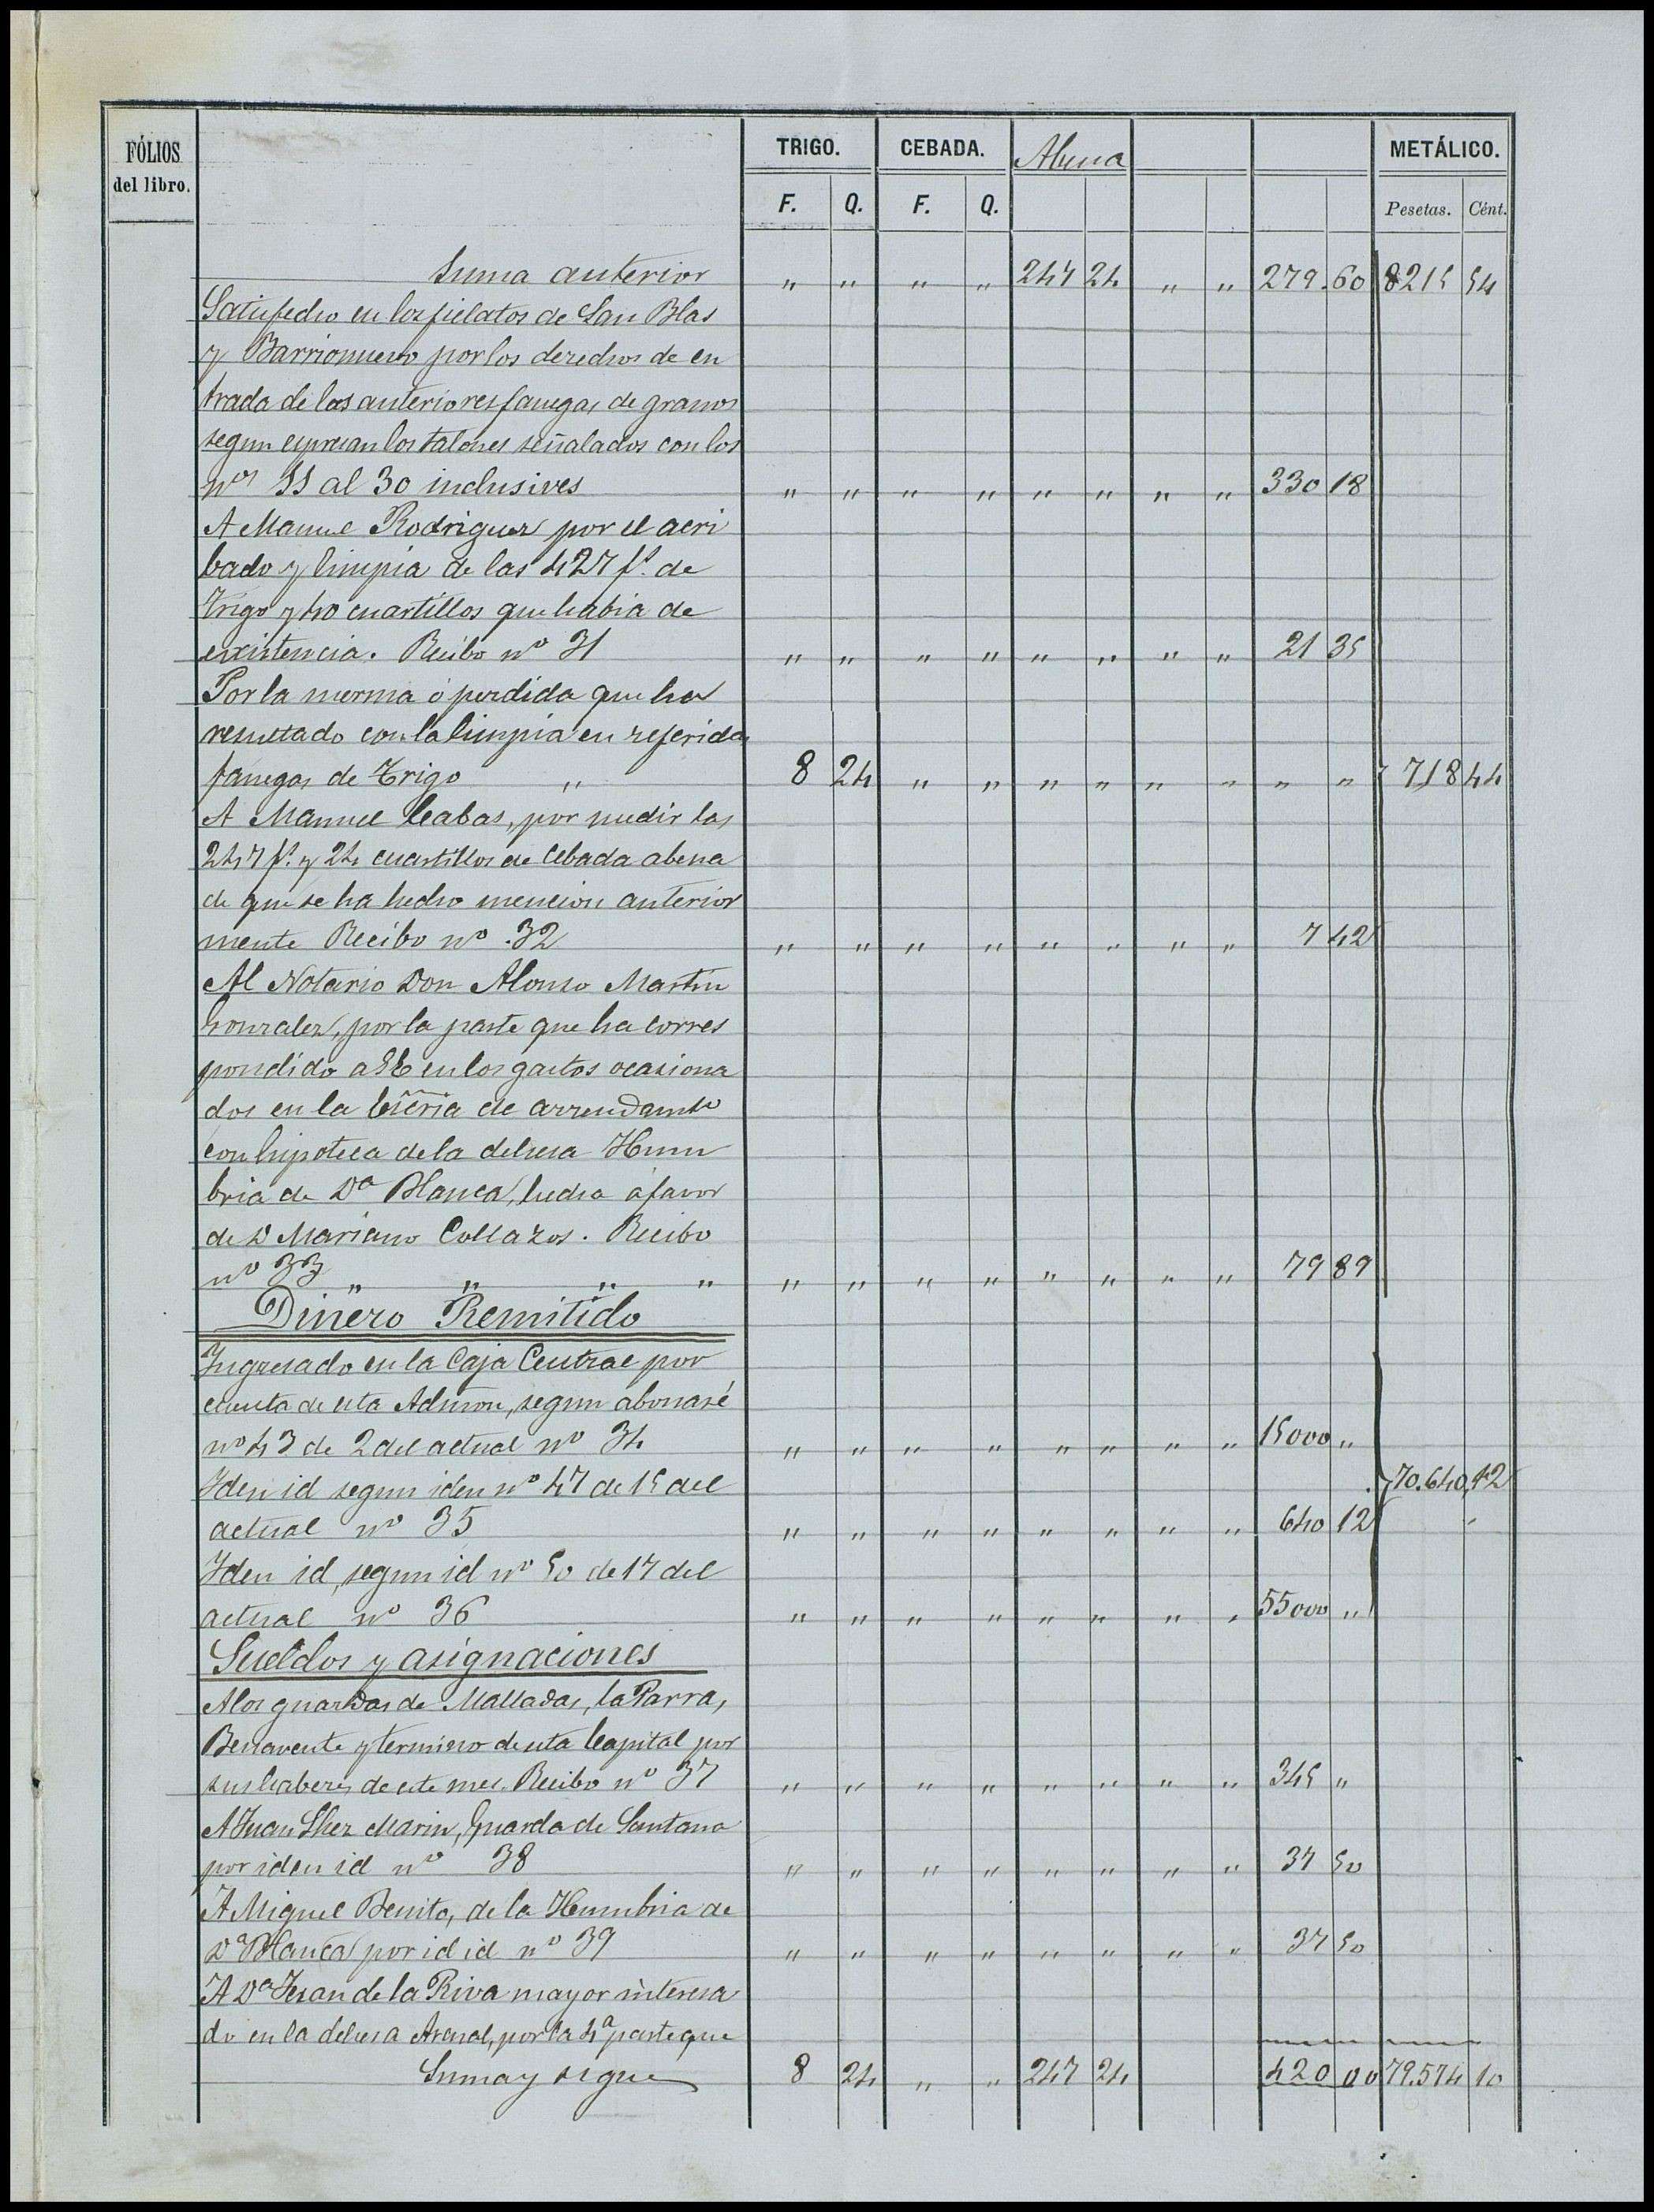 FÓLIOS del libro. TRIGO. CEBADA. Abena METÁLICO.
F. Q. F. Q. Pesetas. Cént.
Suma anterior " " " " 247 24 " " 279.60 8215 54
Satisfecho en los fielatos de San Blas
y Barrionuevo por los derechos de en
trada de las anteriores fanegas de granos
segun espresan los talones señalados con los
nos 11 al 30 inclusives " " " " " " " " 330 18
A Manuel Rodriguez por el acri
bado y limpia de las 427 fs. de
trigo y 40 cuartillos que habia de
existencia. Recibo nº 31 " " " " " " " " 21 35
Por la merma ó perdida que ha
resultado con la limpia en referidas
fanegas de Trigo " 8 24 " " " " " " " " 718 44
A Manuel Cabas, por medir las
247 fs. y 24 cuartillos de Cebada abena
de que se ha hecho mencion anterior
mente Recibo nº 32 " " " " " " " " 7 42
Al Notario Don Alonso Martin
Gonzalez, por la parte que ha corres
pondido a SE en los gastos ocasiona
dos en la Escria de arrendamto
con hipoteca de la dehesa Hum
bria de Dª Blanca, hecha á favor
de D Mariano Collazos. Recibo
nº 33 " " " " " " " " " " " " 79 89
Dinero Remitido
Ingresado en la Caja Central por
cuenta de esta Admon, segun abonaré
nº 43 de 2 del actual nº 34 " " " " " " " " 15000 "
Iden id segun iden nº 47 de 15 del 70.640,12
actual nº 35 " " " " " " " " 640 12
Iden id, segun id nº 50 de 17 del
actual nº 36 " " " " " " " " 55000 "
Sueldos y asignaciones
A los guardas de Malladas, la Parra,
Benavente y termino de esta Capital por
sus haberes de este mes. Recibo nº 37 " " " " " " " " 345 "
A Juan Shez Marin, Guarda de Santana
por iden id nº 38 " " " " " " " " 37 50
A Miguel Benito, de la Humbria de
Dª Blanca por id id nº 39 " " " " " " " " 37 50
A Dª Jesan de la Riva mayor interesa
do en la dehesa Arenal, por la 4ª parte que
Suma y sigue 8 24 " " 247 24 420 00 79.574 10